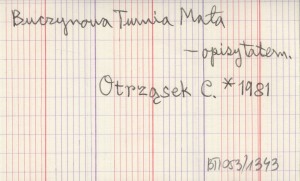 Buczynowa Turnia Mała
- opisy tatern.
Otrząsek C. * 1981
BT/053/1343